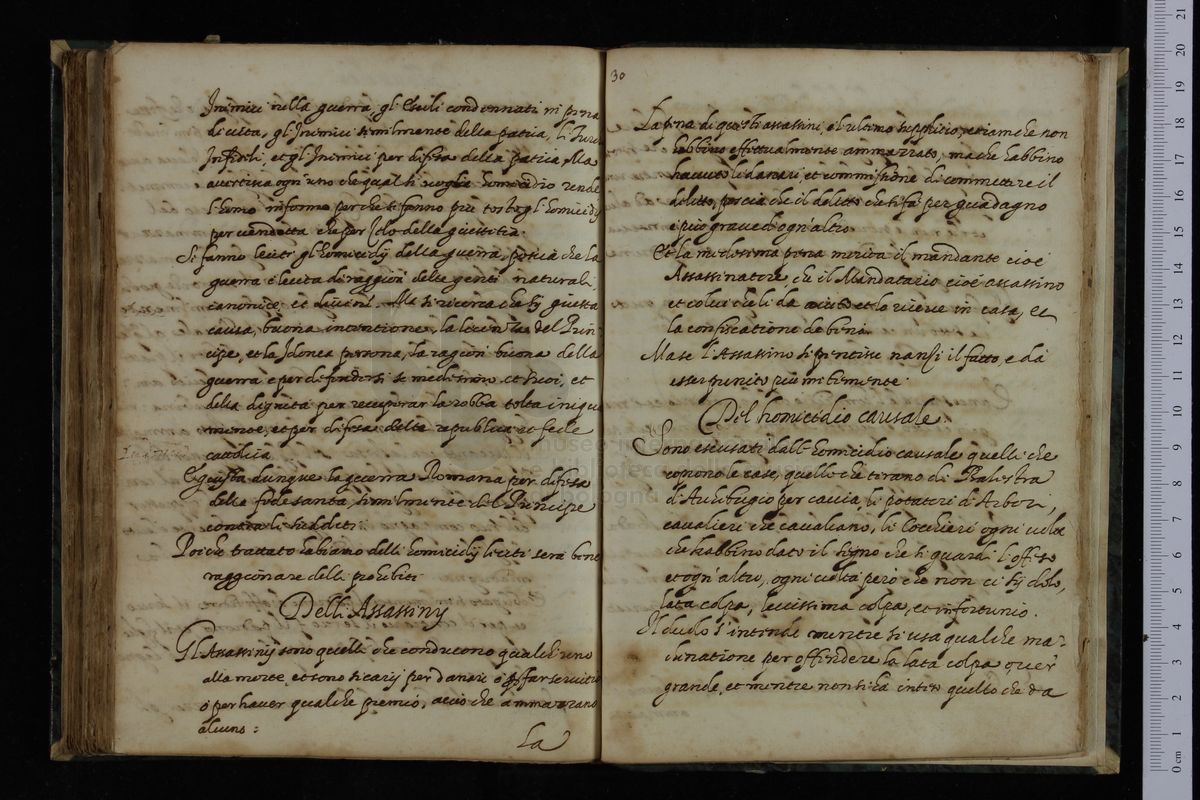 Inimici nella guerra, gl'Esuli condennati in pena
di vita, gl'Inimici similmente della patria, li Turc
Infideli, et gl'Inimici per difesa della patria, Ma
avertisca ogn'uno che qual si voglia homicidio rende
l'homo informe perche si fanno più tosto gl'homicidij
per vendetta che per Zelo della giustitia.
Si fanno leciti gl'homicidij della guerra, poscia che la
guerra è lecita di raggion delle genti naturali,
canonice, et divini. Ma si ricerca che sij giusta
causa, buona intentione, la licenza del Prin-
cipe, et la Idonea persona, la raggion buona della
guerra è per difendersi se medesimo et suoi, et
della dignità per recuperar la robba tolta iniqua
mente, et per difesa della republica et fede
catolica
E giusta dunque la guerra Romana per difesa
della fede santa, similmente del Principe
contra li sudditi.
Poiche trattato habiamo delli homicidij leciti serà bene
raggionare delli prohibiti
Delli Assassinij
Gl'Assassinij sono quelli che conducono qualch'uno
alla morte, et sono sicarij per danari ò per far servitio
ò per haver qualche premio, acciò che ammazzano
alcuno:
La
30
La pena di questi assassini, è l'ultimo supplicio, etiam che non
habbino effettualmente ammazzato, ma che habbino
havuto li danari et commissione di commettere il
delitto, poscia che il delitto che si fà per guadagno
è più grave d'ogn'altro
Et la medesima pena merita il mandante cioè
Assassinatore che il Mandatario cioè assassino
et colui che li da aiuto et lo riceve in casa, et
la confiscatione de beni.
Ma se l'Assassino si pentisse nanzi il fatto, è da
esser punito più mitemente.
Del homicidio causale
Sono escusati dall'homicidio causale quelli che
coprono le case, quelli che tirano di Balestra
d'Archibugio per caccia, li potatori d'Arbori,
cavalieri che cavalcano, li Cocchieri ogni volta
che habbino dato il signo che si guardi l'offeso
et ogn'altro, ogni volta però che non ci sij dolo,
lata colpa, levissima colpa, et infortunio.
Il duolo s'intende mentre si usa qualche ma-
chinatione per offendere la lata colpa, over
grande, et mentre non si hà inteso quello che da